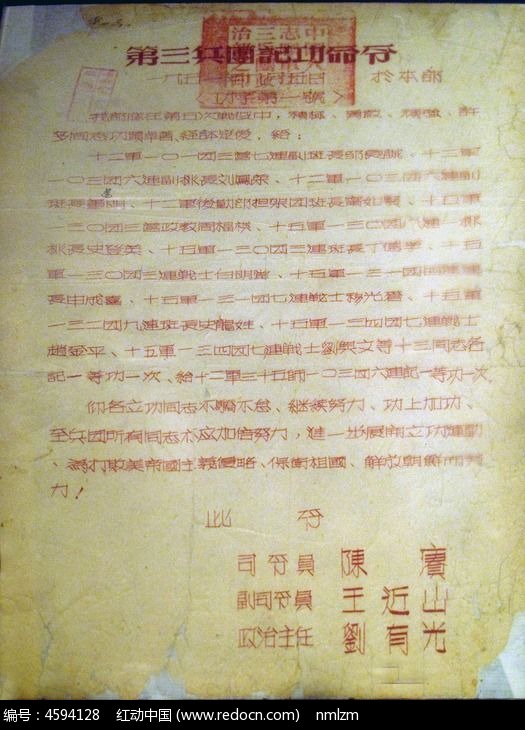 中志三治
第三兵團記功命令
一九五一年 於本部
〈功字第一號〉
我部隊在第五次戰役中，積極、勇敢、頑強、許
多同志功績卓著、經評定後，給：
十二軍一〇一团三營七連副班長、十三軍
一〇三团六連副排長刘鳳荣、十二軍一〇三团六連副
班長、十二軍後勤部担架团班長、十五軍
一三〇团三營政教周福祺、十五軍一三〇团八連一排
排長史登美、十五軍一三〇团三連班長丁、十五
軍一三〇团三連戰士白明、十五軍一三一团連
長申成、十五軍一三一团七連戰士楊光、十五軍
一三二团九連班長史龍姓、十五軍一三四团七連戰士
趙金平、十五軍一三四团七連戰士劉興文等十三同志各
記一等功一次、給十二軍三十五師一〇三团六連記一等功一次。
仰各立功同志不驕不怠、繼續努力、功上加功、
全兵团所有同志亦应加倍努力，進一步展開立功運動
、為打敗美帝國主義侵略、保衛祖國、解放朝鮮而努
力！
此令
司令員 陳賡
副司令員 王近山
政治主任 劉有光
编号：4594128 红动中国 (www.redocn.com) nmlzm